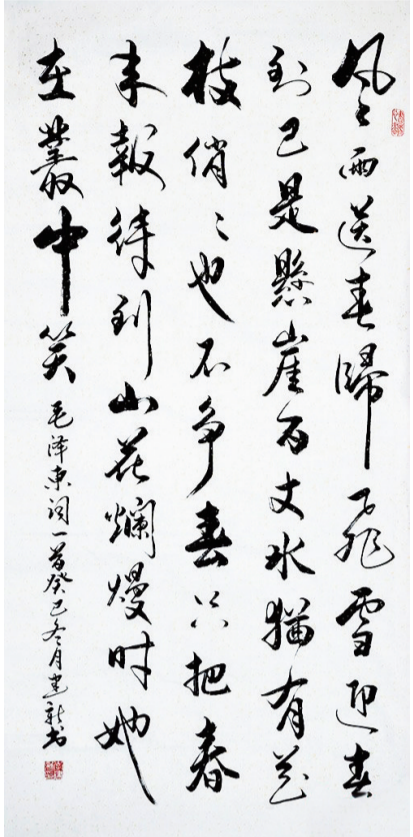 風雨送春歸飛雪迎春
到已是懸崖百丈冰猶有花
枝俏〻也不争春只把春
来報待到山花爛熳时她
在叢中笑 毛泽東词一首癸巳冬月建新书